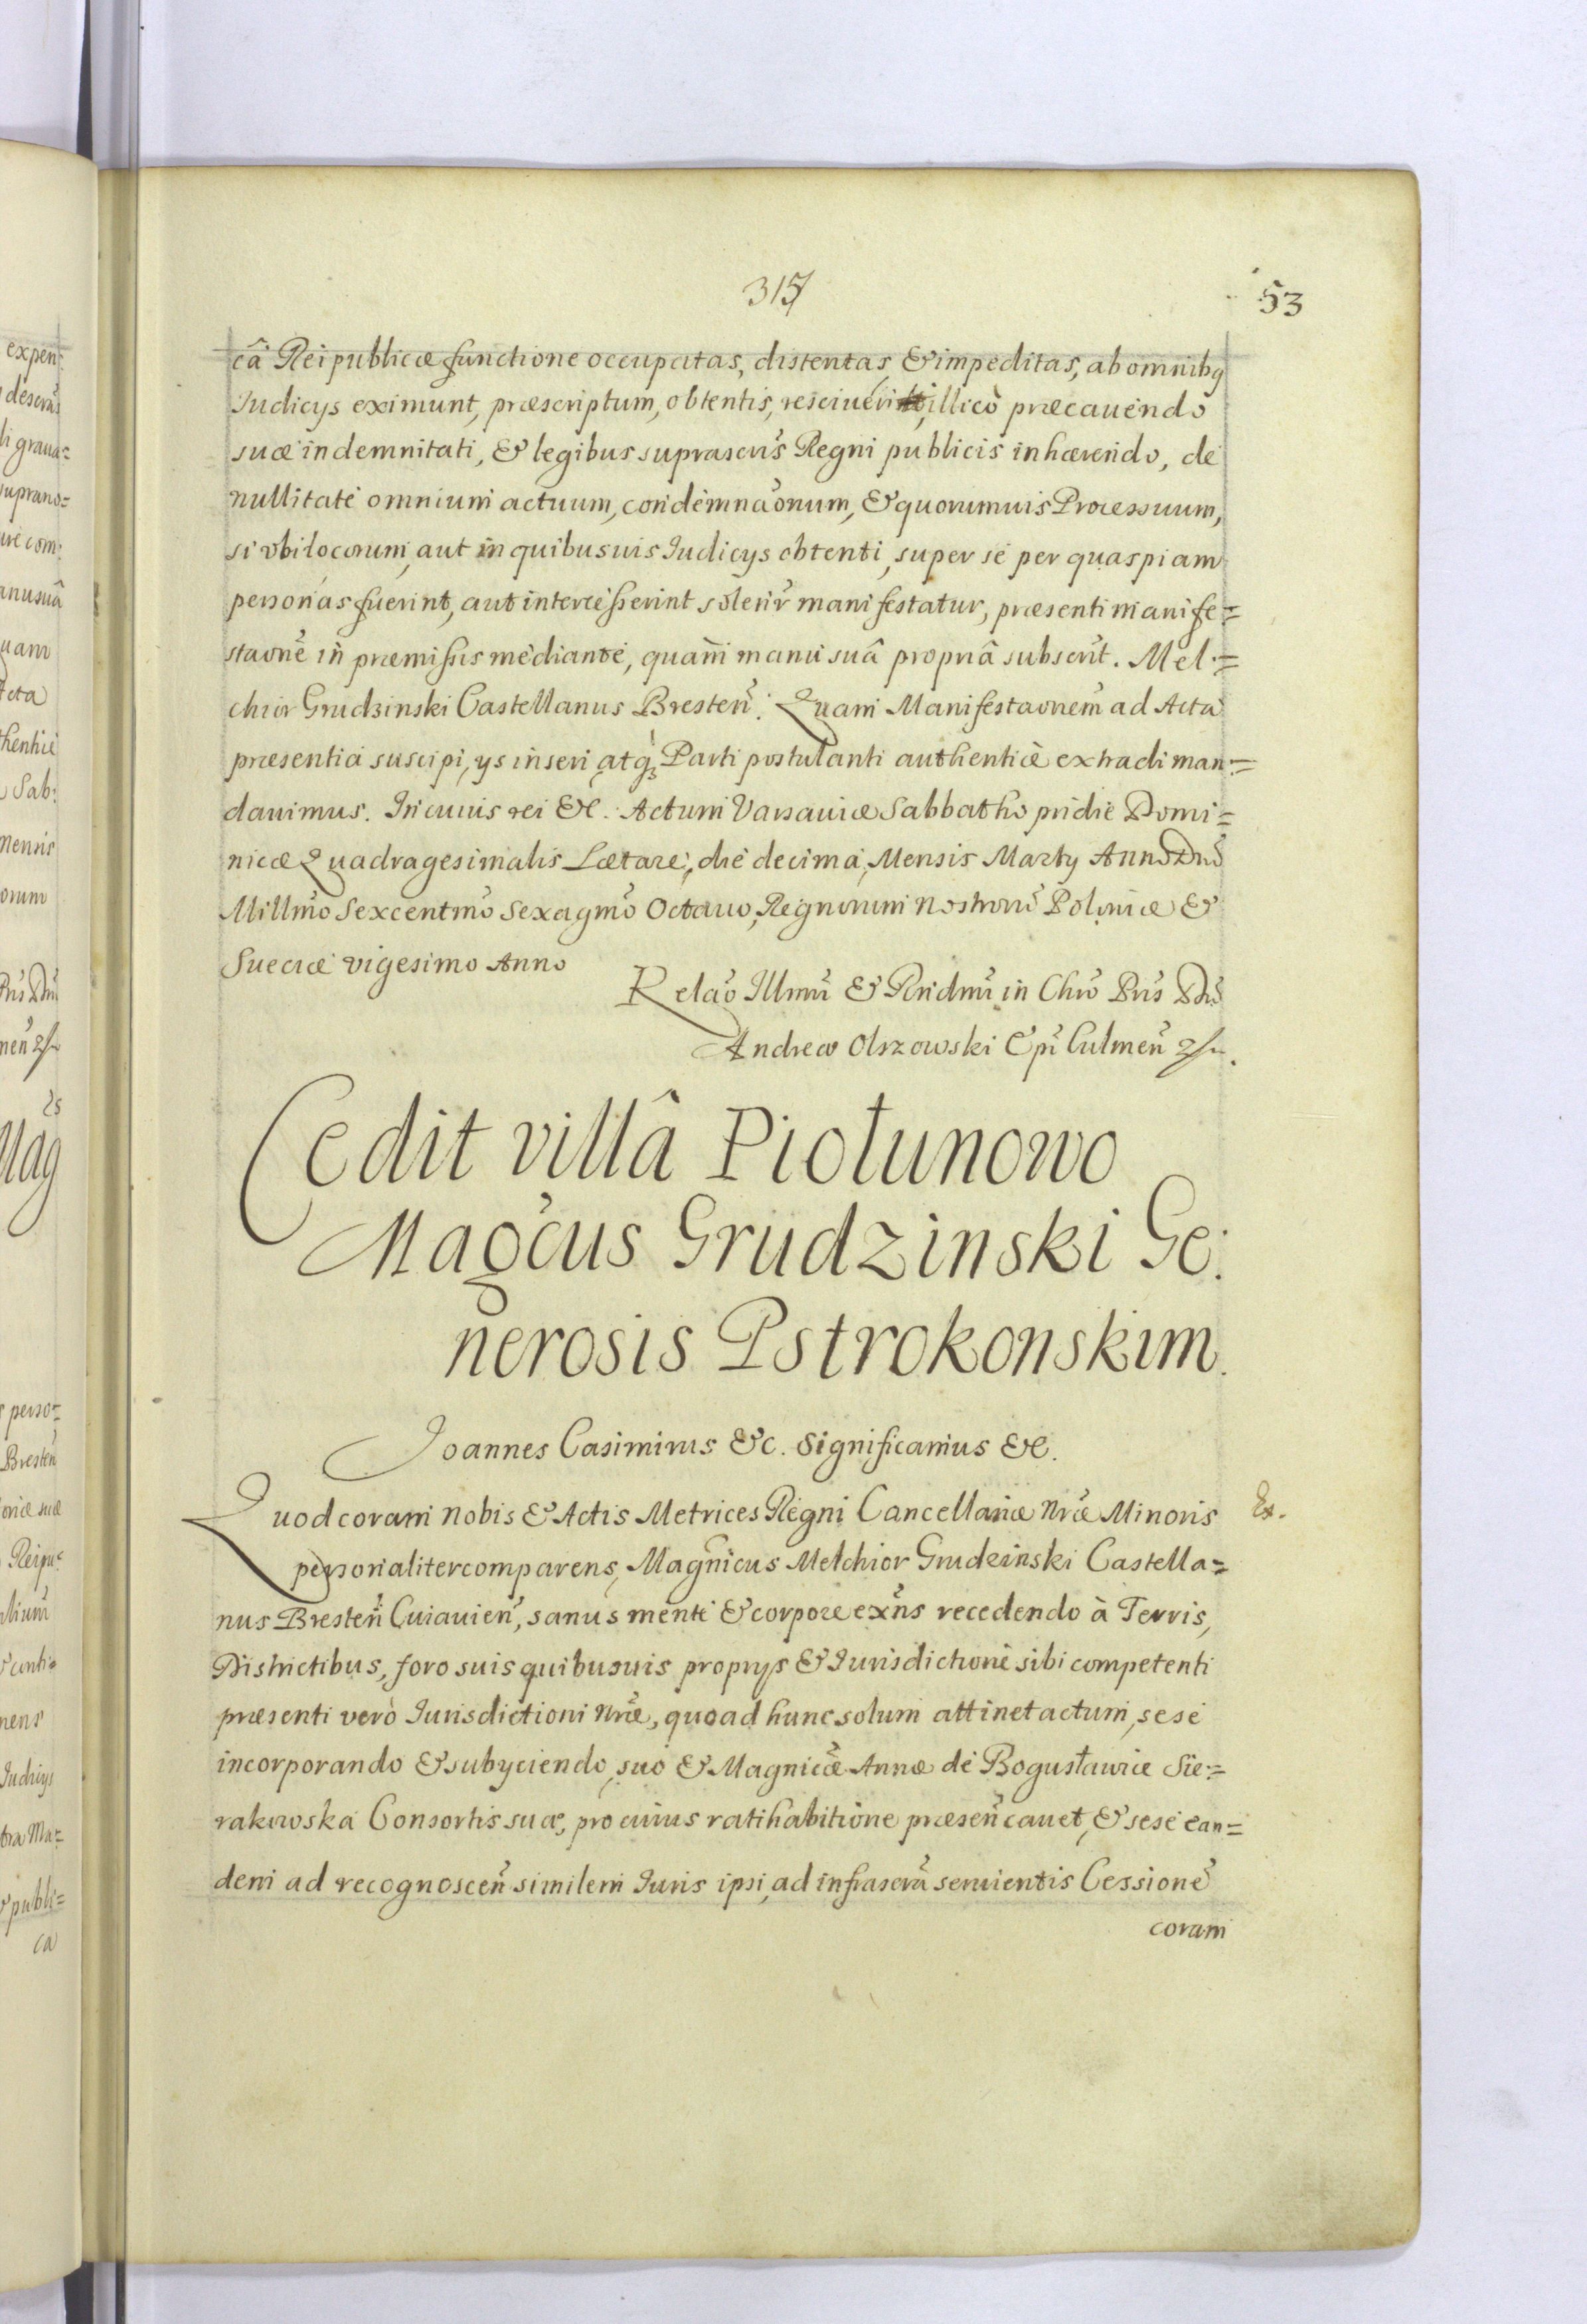 315
53
câ Reipublicæ functione occupatas, distentas, & impeditas, ab omnibq
Iudicijs eximunt, præscriptum, obtentis, resciuerit, illicò præcauendo
suæ indemnitati, & legibus suprascris̃ Regni publicis inhærendo, de
nullitate omnium actuum, condemnãonum, & quorumuis Processuum,
si vbilocorum, aut in quibusuis Iudicijs obtenti, super se per quaspiam
personas fuerint, aut intercesserint solenr̃ manifestatur, præsenti manife=
staone᷃ in præmissis mediante, quam manu suâ propriâ subscrit̃. Mel=
chior Grudzinski Castellanus Bresten̄. Quam Manifestaonem ad Acta
præsentia suscipi, ijs inseri, atq́ꝫ Parti postulanti authenticè extradi man=
dauimus. In cuius rei &c. Actum Varsauiæ Sabbatho pridie Domi=
nicæ Quadragesimalis Lætare, die decima, Mensis Martij Anno Dn̄i
Millmo᷃ Sexcentmo᷃ Sexagmo᷃ Octauo, Regnorum nostrorũ Poloniæ &
Sueciæ vigesimo Anno
Relao᷃ Illmi᷃ & Rndmi᷃ in Chro᷃ Pris᷃ Dn̄i
Andreæ Olszowski Epi᷃ Culmen̄
Cedit villâ Piołunowo
Mag᷃cus Grudzinski Ge:
nerosis Pstrokonskim.
Joannes Casimirus &c. Significamus &c.
Quod coram nobis & Actis Metrices Regni Cancellariæ nræ᷃ Minoris
Ex.
personaliter comparens, Magnicus᷃ Melchior Grudzinski Castella=
nus Bresten̄ Cuiauien̄, sanus mente & corpore exn̄s recedendo à Terris,
Districtibus, foro suis quibusuis proprijs & Iurisdictione sibi competenti
præsenti verò Iurisdictioni nræ᷃, quoad hunc solum attinet actum, sese
incorporando & subijciendo, suo & Magnicæ᷃ Annæ de Bogusławice Sie=
rakowska Consortis suæ, pro cuius ratihabitione præsen̄ cauet, & sese ean=
dem ad recognoscen̄ similem Iuris ipsi, ad infrascra᷃ seruientis Cessione᷃
coram